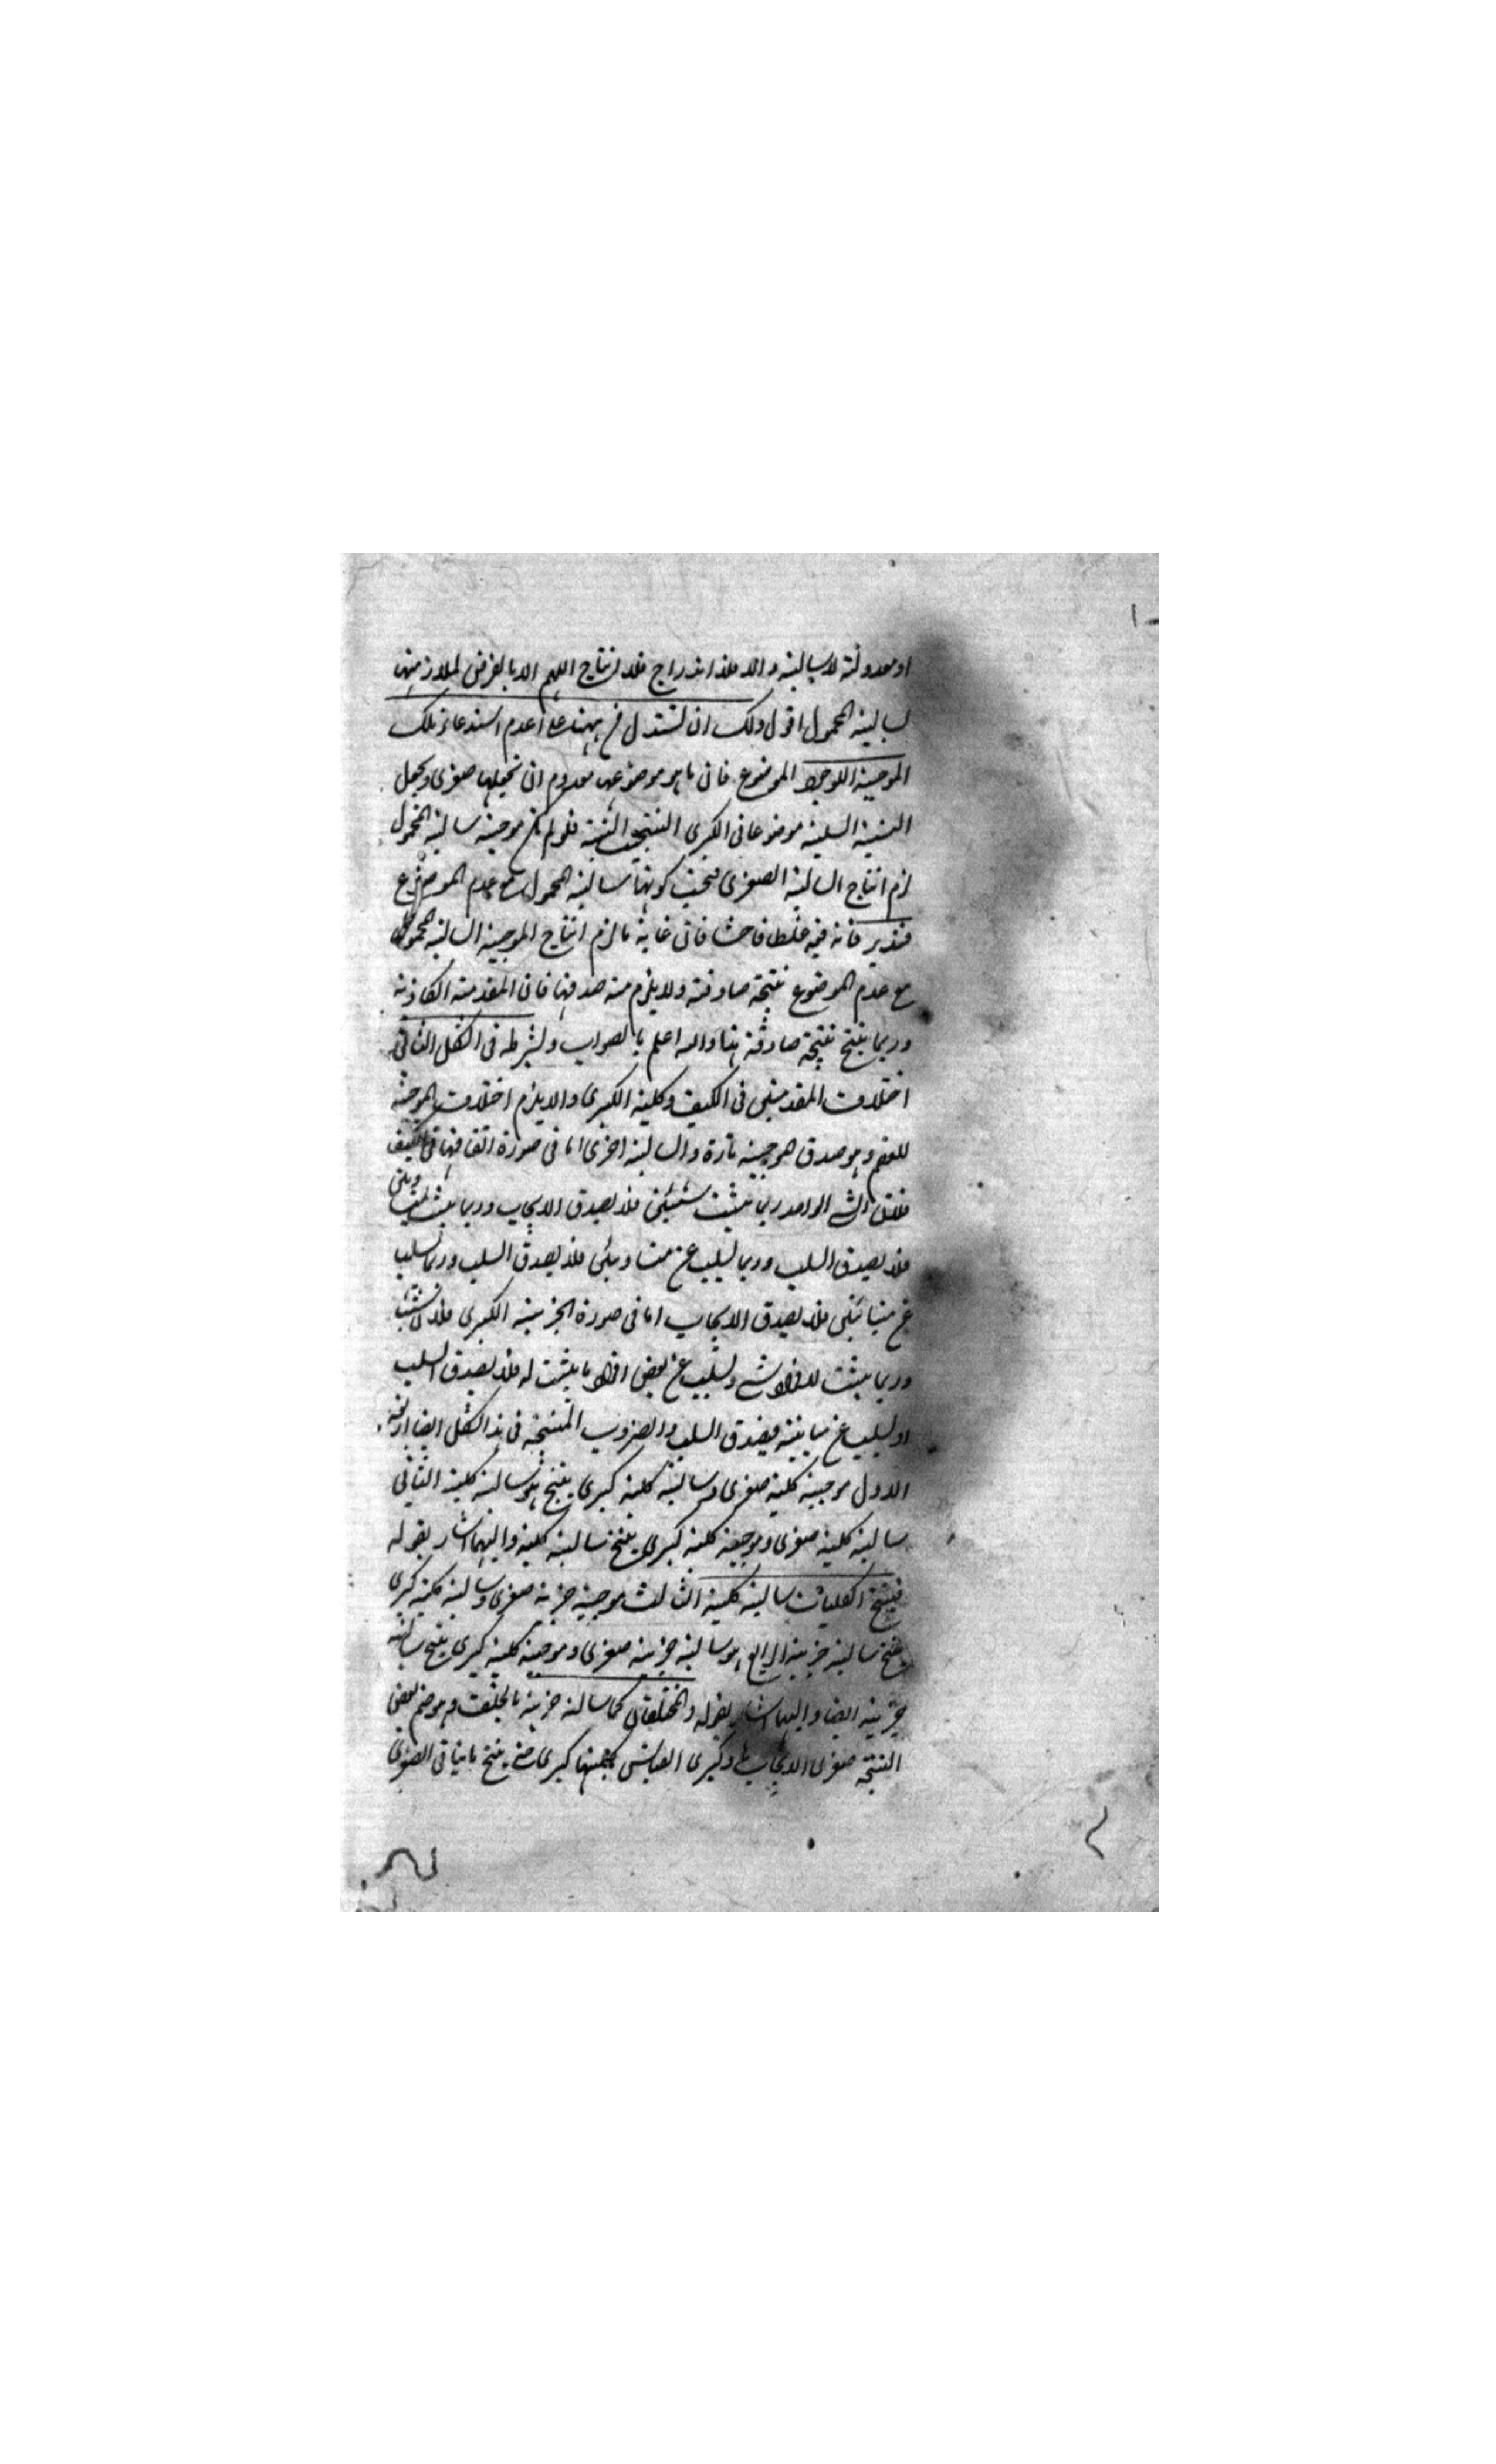 او معدولة لا سالبة والا فلا اندراج فلا انتاج اللهم الا بالفرض لملازمتها
لسالبة المحمول اقول ولك ان تستدل من ههنا على عدم استدعاء تلك
الموجبة لوجود الموضوع فان ما هو موضوعها معدوم ان تجعلها صغرى وتجعل
النسبة السلبية موضوعا في الكبرى النتيجة فلو لم تكن موجبة سالبة المحمول
لزم انتاج السالبة الصغرى فتحت كونها سالبة المحمول مع عدم الموضوع
فتدبر فانه فيه غلطا فاحشا فان غاية ما لزم انتاج الموجبة السالبة المحمول
مع عدم الموضوع نتيجة صادقة ولا يلزم منه صدقها فان المقدمة الكاذبة
وربما ينتج نتيجة صادقة هذا والله اعلم بالصواب ويشرط في الشكل الثاني
اختلاف المقدمتين في الكيف وكلية الكبرى والا يلزم اختلاف الموجب
للعقم وهو صدق الموجبة تارة والسالبة اخرى اما في صورة اتفاقهما في الكيف
فلان الشئ الواحد ربما يثبت لشيئين فلا يصدق الايجاب وربما يثبت لمتساويين
فلا يصدق السلب وربما يسلب عن متساويين فلا يصدق السلب وربما يسلب
عن متباينين فلا يصدق الايجاب اما في صورة الجزئية الكبرى فلان الشئ
وربما يثبت لافراد شئ ويسلب عن بعض افراد ما يثبت له فلا يصدق السلب
او يسلب عن مباينه فيصدق السلب والضروب المنتجة في هذا الشكل ايضا اربعة
الاول موجبة كلية صغرى وسالبة كلية كبرى ينتج هو سالبة كلية الثاني
سالبة كلية صغرى وموجبة كلية كبرى ينتج سالبة كلية واليهما اشار بقوله
فينتج الكليتان سالبة كلية الثالث موجبة جزئية صغرى وسالبة كلية كبرى
ينتج سالبة جزئية الرابع هو سالبة جزئية صغرى وموجبة كلية كبرى ينتج سالبة
جزئية ايضا واليهما اشار بقوله والمختلفتان كما سالبة جزئية بالخلف وهو ضم نقيض
النتيجة صغرى لايجابها وكبرى القياس لكليتها كبرى حتى ينتج ما ينافي الصغرى